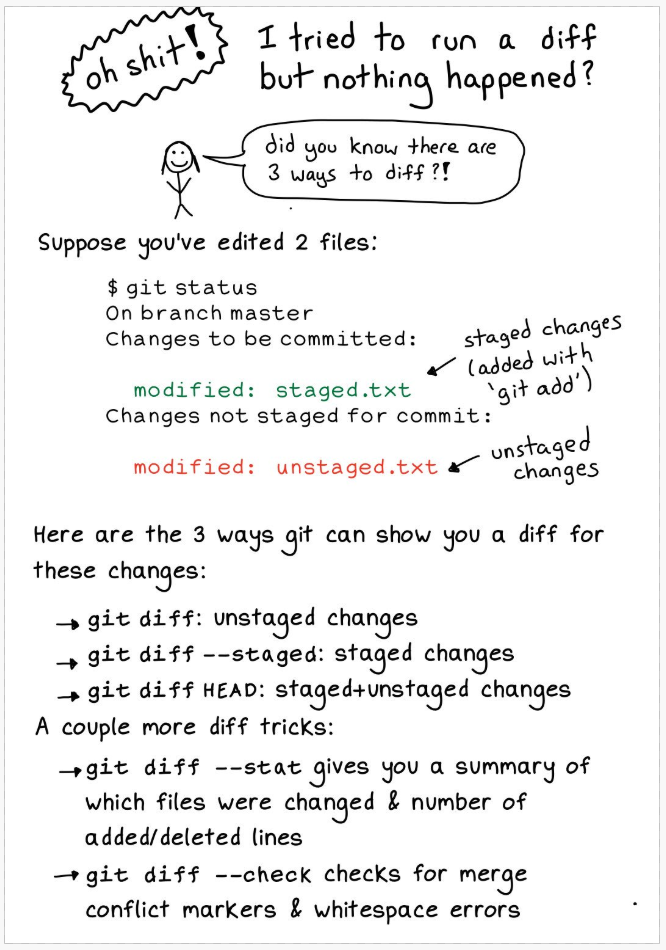 oh shit!
I tried to run a diff
but nothing happened?
did you know there are
3 ways to diff?!
Suppose you've edited 2 files:
$ git status
On branch master
Changes to be committed:
staged changes
(added with
'git add')
modified: staged.txt
Changes not staged for commit:
unstaged
changes
modified: unstaged.txt
Here are the 3 ways git can show you a diff for
these changes:
→ git diff: unstaged changes
→ git diff --staged: staged changes
→ git diff HEAD: staged+unstaged changes
A couple more diff tricks:
→ git diff --stat gives you a summary of
which files were changed & number of
added/deleted lines
→ git diff --check checks for merge
conflict markers & whitespace errors